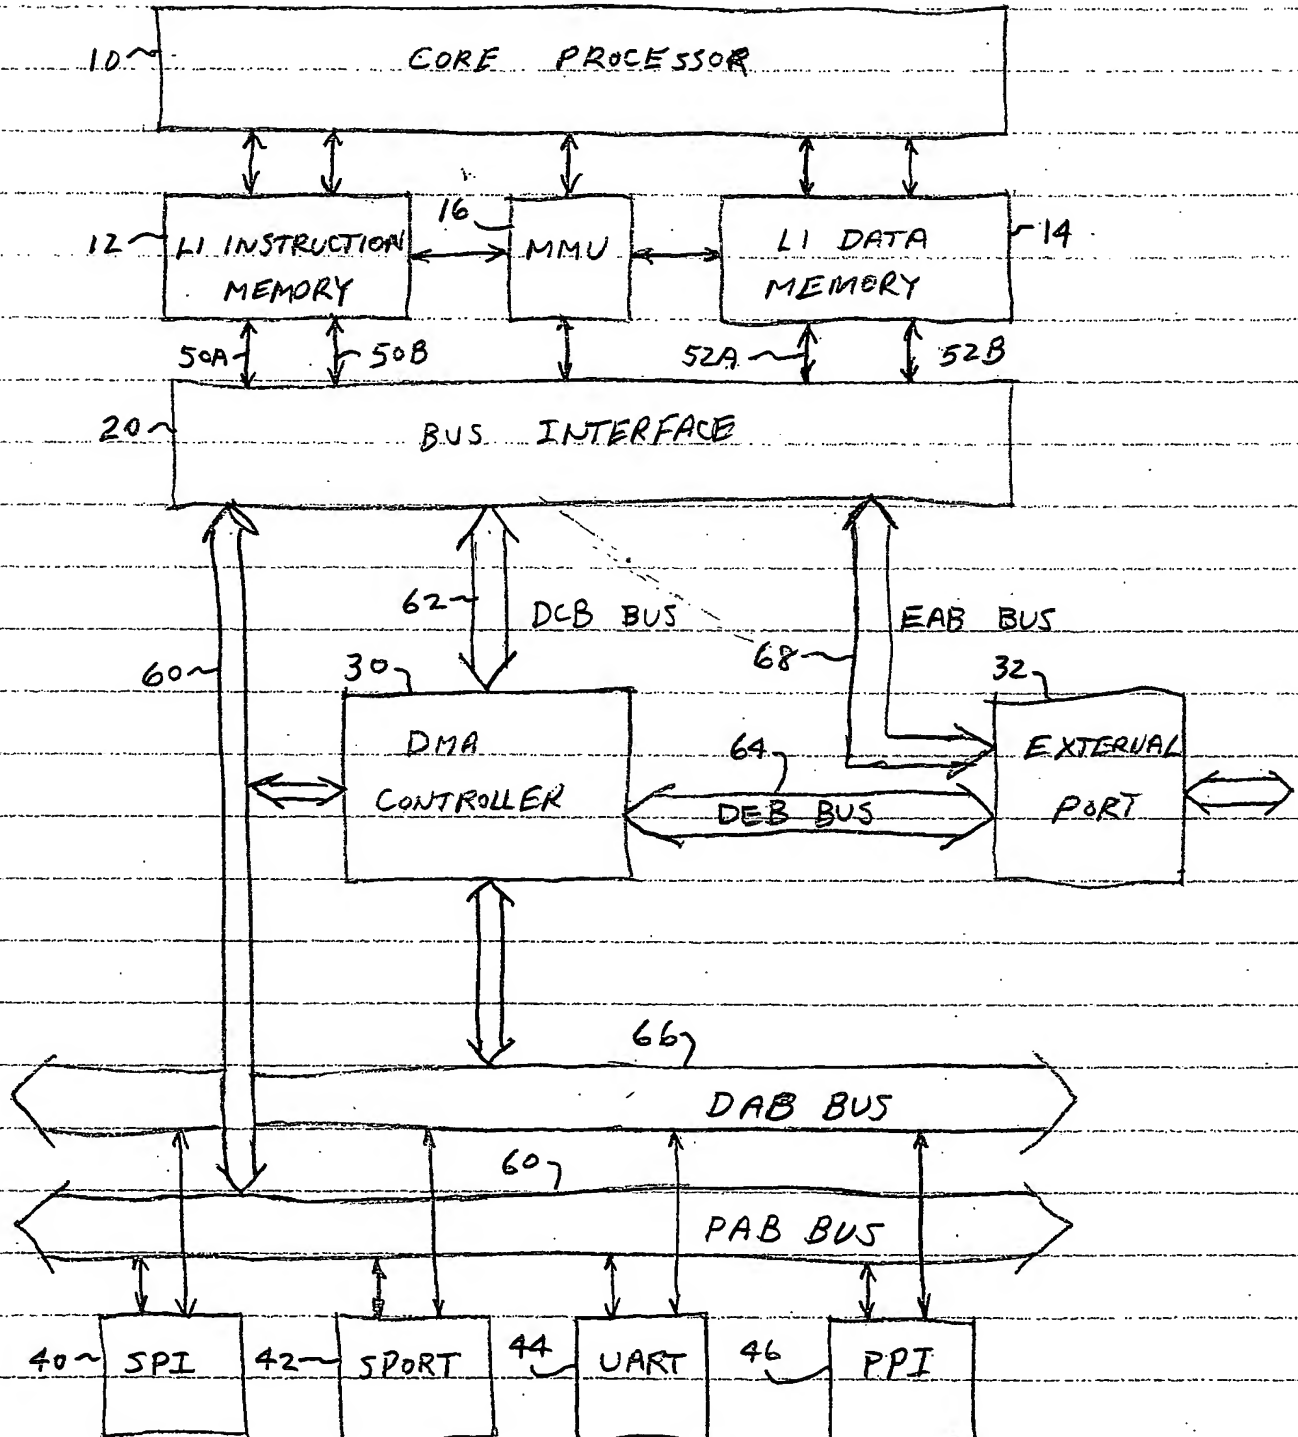 10
CORE PROCESSOR
16
12
L1 INSTRUCTION
MEMORY
MMU
L1 DATA
MEMORY
14
50A
50B
52A
52B
20
BUS INTERFACE
62
DCB BUS
EAB BUS
60
30
68
32
DMA
CONTROLLER
64
DEB BUS
EXTERNAL
PORT
66
DAB BUS
60
PAB BUS
40
SPI
42
SPORT
44
UART
46
PPI